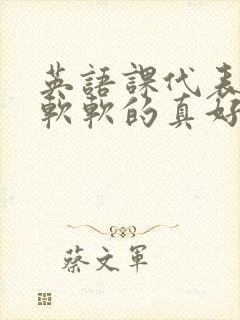 英語課代表
軟軟的真好
蔡文軍